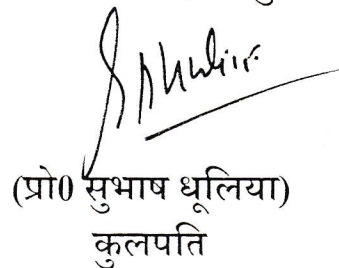 (प्रो0 सुभाष धूलिया)
कुलपति